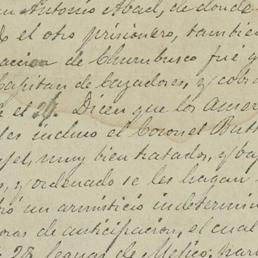 n Antonio Abad, de donde
el otro prisionero, tambien
acion de Churubusco fué q
capitan de cazadores, y cobr
el 29. Dicen que los Amer
les incluso el Coronel Butl
muy bien tratados, y ba
y ordenado se les hagan
ió un armisticio indetermin
oras de anticipacion, el cual
28 leguas de Mejico, par